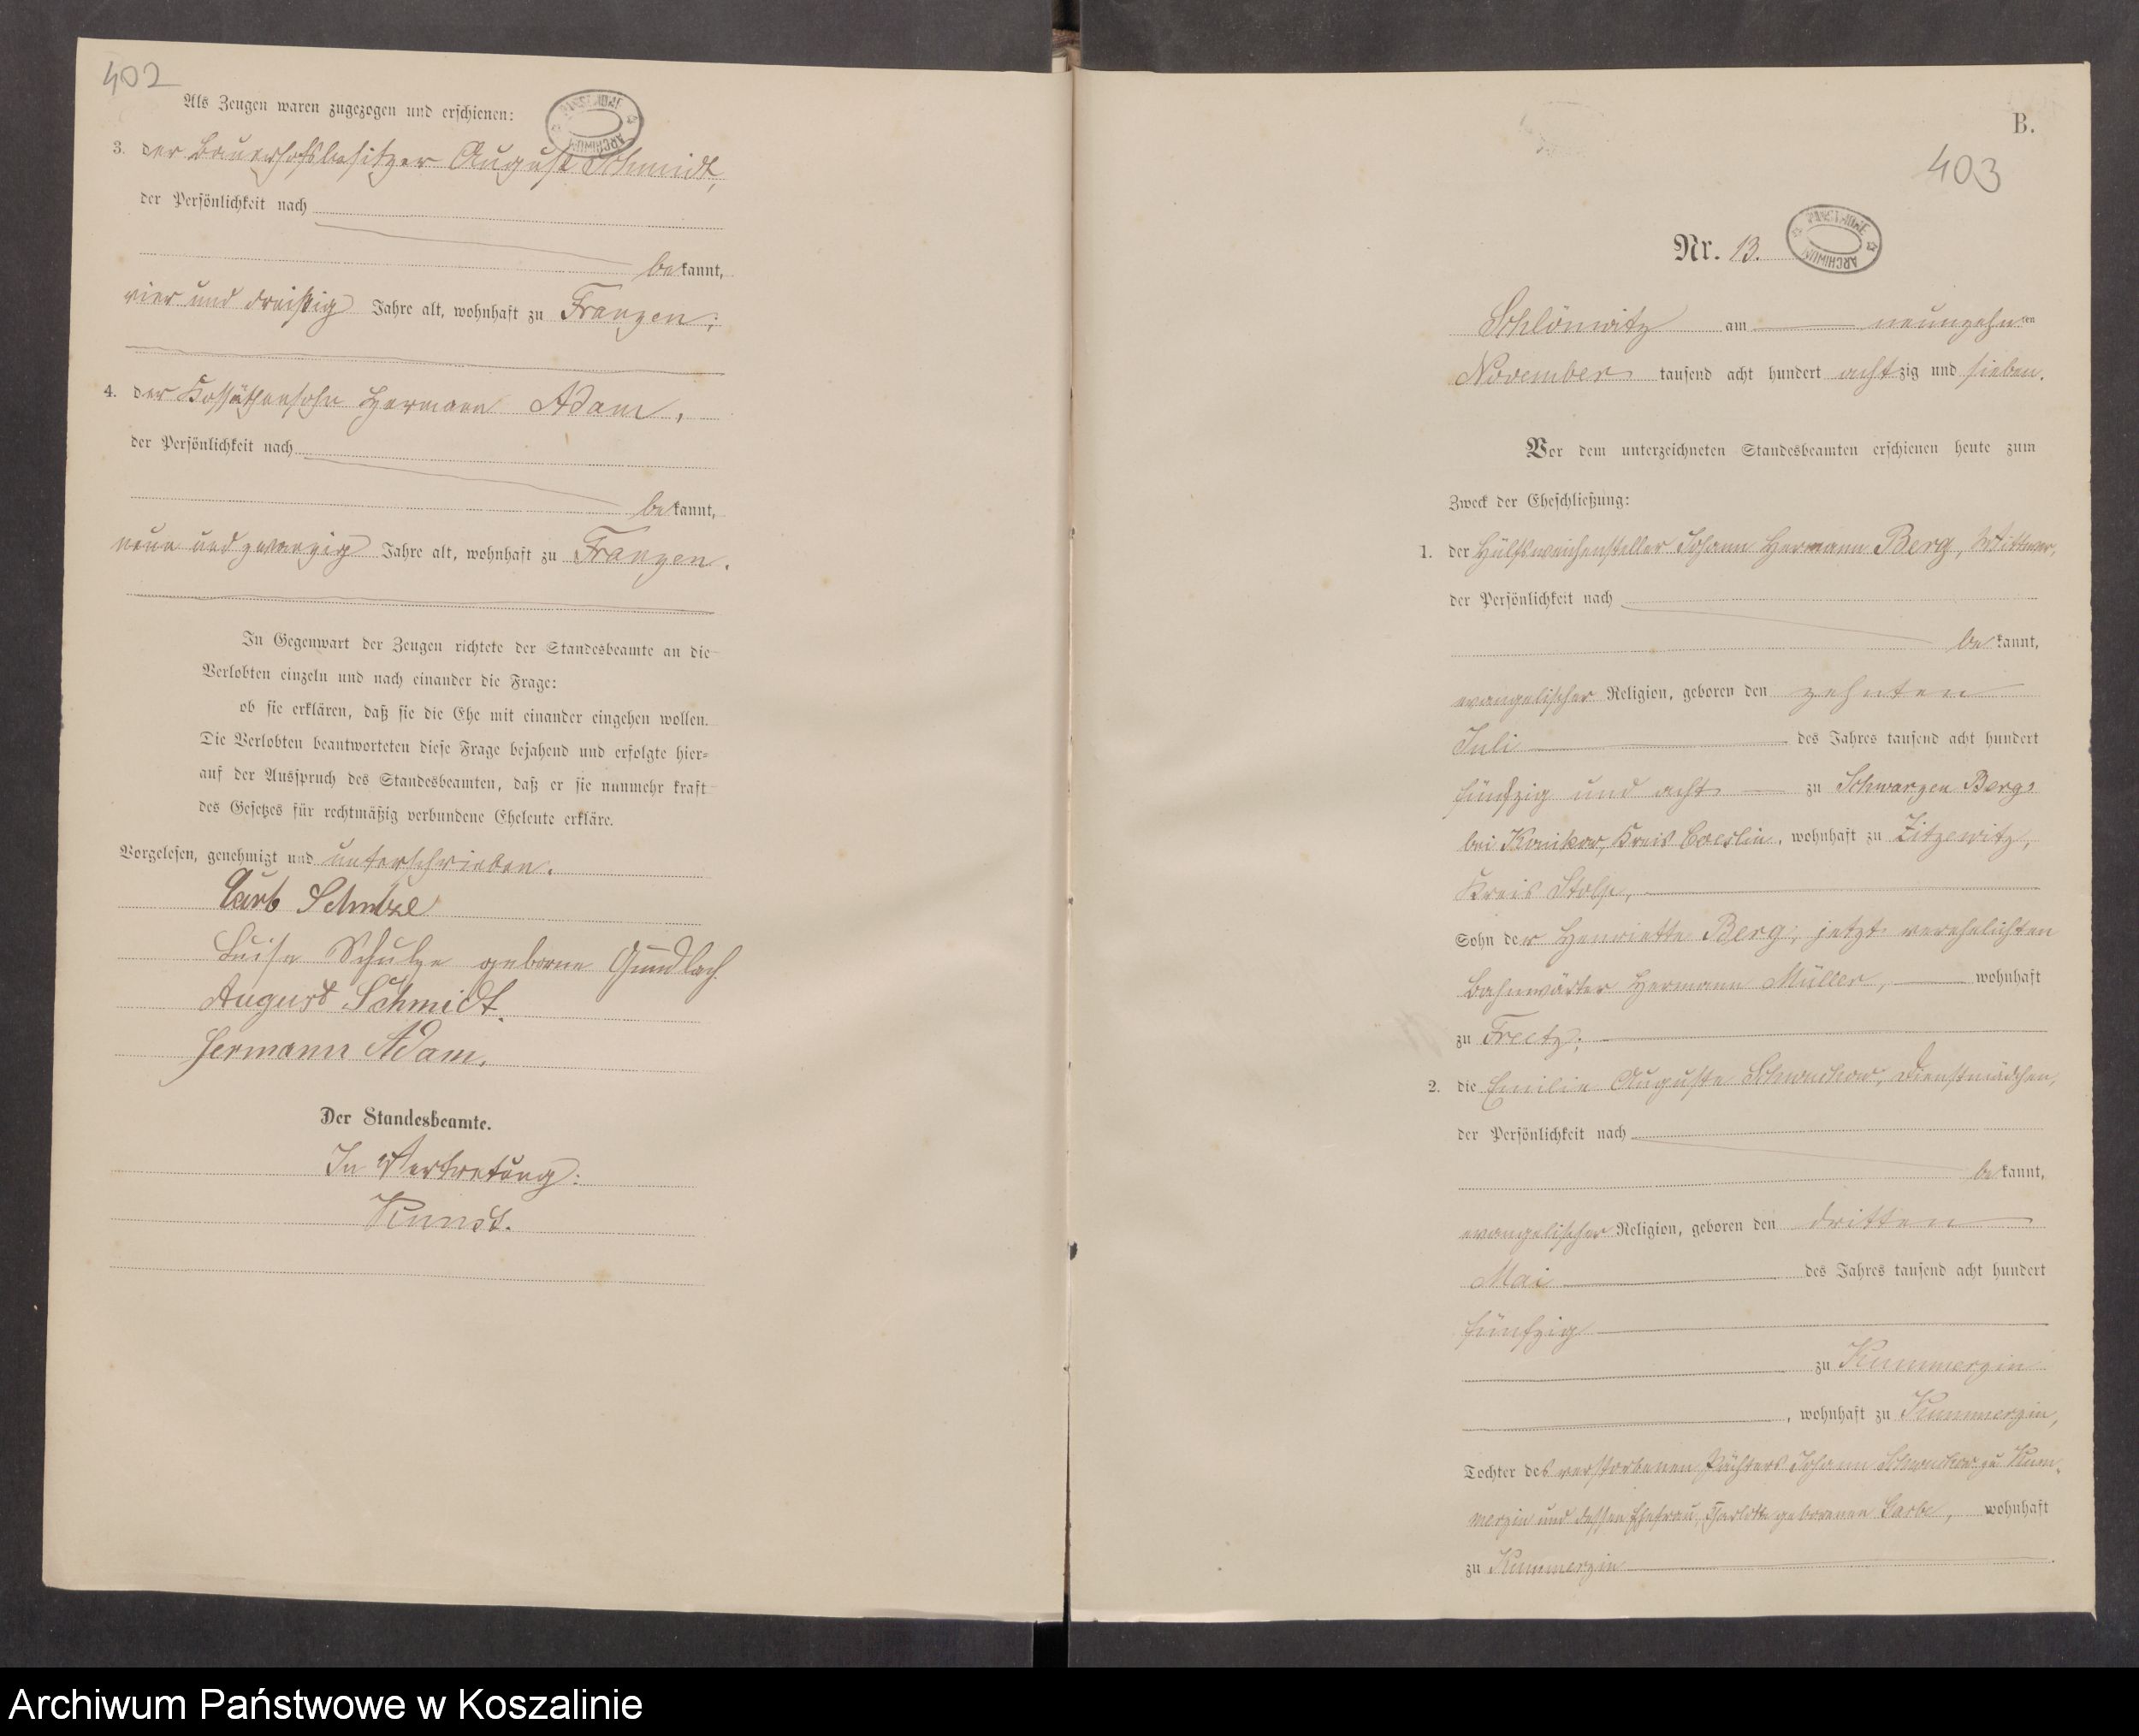 402
Als Zeugen waren zugezogen und erschienen:
PAŃSTWOWE ARCHIWUM
3. der Bauerhofsbesitzer August Schmidt,
der Persönlichkeit nach
bekannt,
vier und dreißig Jahre alt, wohnhaft zu Franzen;
4. der Kossäthensohn Hermann Adam,
der Persönlichkeit nach
bekannt,
neun und zwanzig Jahre alt, wohnhaft zu Franzen.
In Gegenwart der Zeugen richtete der Standesbeamte an die
Verlobten einzeln und nach einander die Frage:
ob sie erklären, daß sie die Ehe mit einander eingehen wollen.
Die Verlobten beantworteten diese Frage bejahend und erfolgte hier-
auf der Ausspruch des Standesbeamten, daß er sie nunmehr kraft
des Gesetzes für rechtmäßig verbundene Eheleute erkläre.
Vorgelesen, genehmigt und unterschrieben.
Schulze
Luise Schulze geborne Gundlach.
August Schmidt.
Hermann Adam.
Der Standesbeamte.
In Vertretung:
B.
403
Nr. 13.
PAŃSTWOWE ARCHIWUM
Schlönwitz am neunzehnten
November tausend acht hundert achtzig und sieben.
Vor dem unterzeichneten Standesbeamten erschienen heute zum
Zweck der Eheschließung:
1. der Hülfsweichensteller Johann Hermann Berg, Wittwer,
der Persönlichkeit nach
bekannt,
evangelischer Religion, geboren den zehnten
Juli des Jahres tausend acht hundert
fünfzig und acht zu Schwarzen Berg
bei Konikow, Kreis Coeslin, wohnhaft zu Zitzewitz,
Kreis Stolp,
Sohn der Henriette Berg, jetzt verehelichten
Bahnwärter Hermann Müller, wohnhaft
zu Freetz;
2. die Emilie Auguste Schwuchow, Dienstmädchen,
der Persönlichkeit nach
bekannt,
evangelischer Religion, geboren den dritten
Mai des Jahres tausend acht hundert
fünfzig
zu Kummerzin
, wohnhaft zu Kummerzin,
Tochter des verstorbenen Pächters Johann Schwuchow zu Kum-
merzin und dessen Ehefrau, Charlotte geborenen , wohnhaft
zu Kummerzin
Archiwum Państwowe w Koszalinie